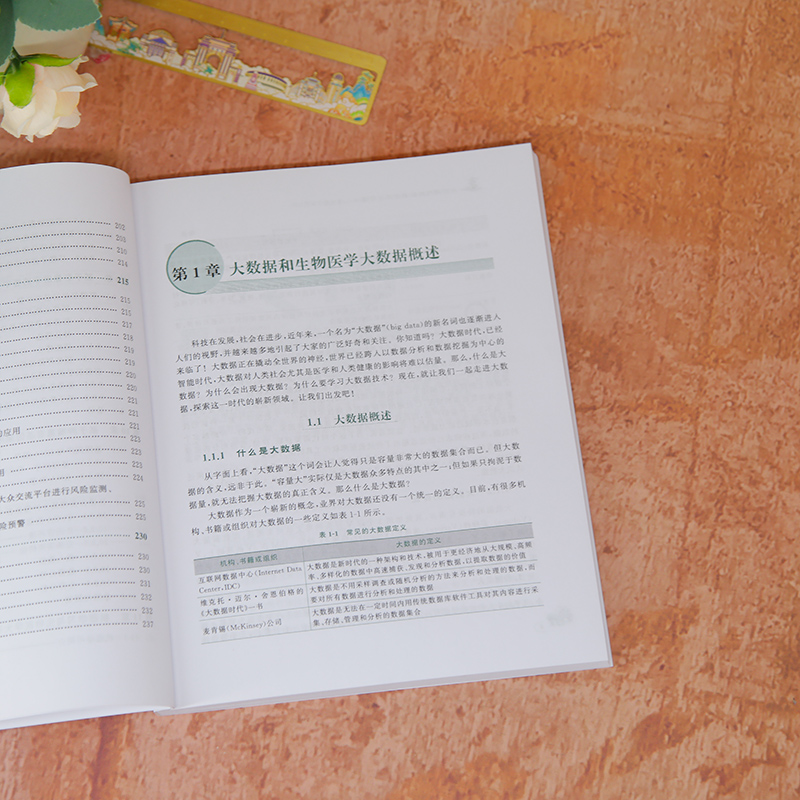 202
208
210
214
215
215
215
216
217
219
220
221
221
的应用
221
223
用
224
225
大众交流平台进行风险监测、
225
险预警
227
230
230
230
235
236
237
第1章 大数据和生物医学大数据概述
科技在发展,社会在进步,近年来,一个名为“大数据”(big data)的新名词也逐渐进入
人们的视野,并越来越多地引起了大家的广泛好奇和关注。你知道吗?大数据时代,已经
来临了!大数据正在撬动全世界的神经,世界已经跨入以数据分析和数据挖掘为中心的
智能时代,大数据对人类社会尤其是医学和人类健康的影响将难以估量。那么,什么是大
数据?为什么会出现大数据?为什么要学习大数据技术?现在,就让我们一起走进大数
据,探索这一时代的崭新领域。让我们出发吧!
1.1 大数据概述
1.1.1 什么是大数据
从字面上看,“大数据”这个词会让人觉得只是容量非常大的数据集合而已。但大数
据的含义,远非于此。“容量大”实际仅是大数据众多特点的其中之一;但如果只拘泥于数
据量,就无法把握大数据的真正含义。那么什么是大数据?
大数据作为一个崭新的概念,业界对大数据还没有一个统一的定义。目前,有很多机
构、书籍或组织对大数据的一些定义如表 1-1 所示。
表 1-1 常见的大数据定义
机构、书籍或组织 大数据的定义
互联网数据中心(Internet Data 大数据是新时代的一种架构和技术,被用于更经济地从大规模、高频
Center,IDC) 率、多样化的数据中高速捕获、发现和分析数据,以提取数据的价值
维克托·迈尔·舍恩伯格的 大数据是不用采样调查或随机分析的方法来分析和处理的数据,而
《大数据时代》一书 要对所有数据进行分析和处理的数据
麦肯锡(McKinsey)公司 大数据是无法在一定时间内用传统数据库软件工具对其内容进行采
集、存储、管理和分析的数据集合